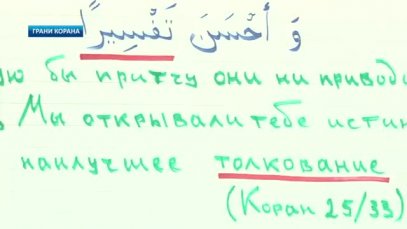 ГРАНИ КОРАНА
وَ أَحْسَنَ تَفْسِيرًا
бы притчу они ни
Мы открывали тебе
наилучшее толкование
(Коран 25/33)